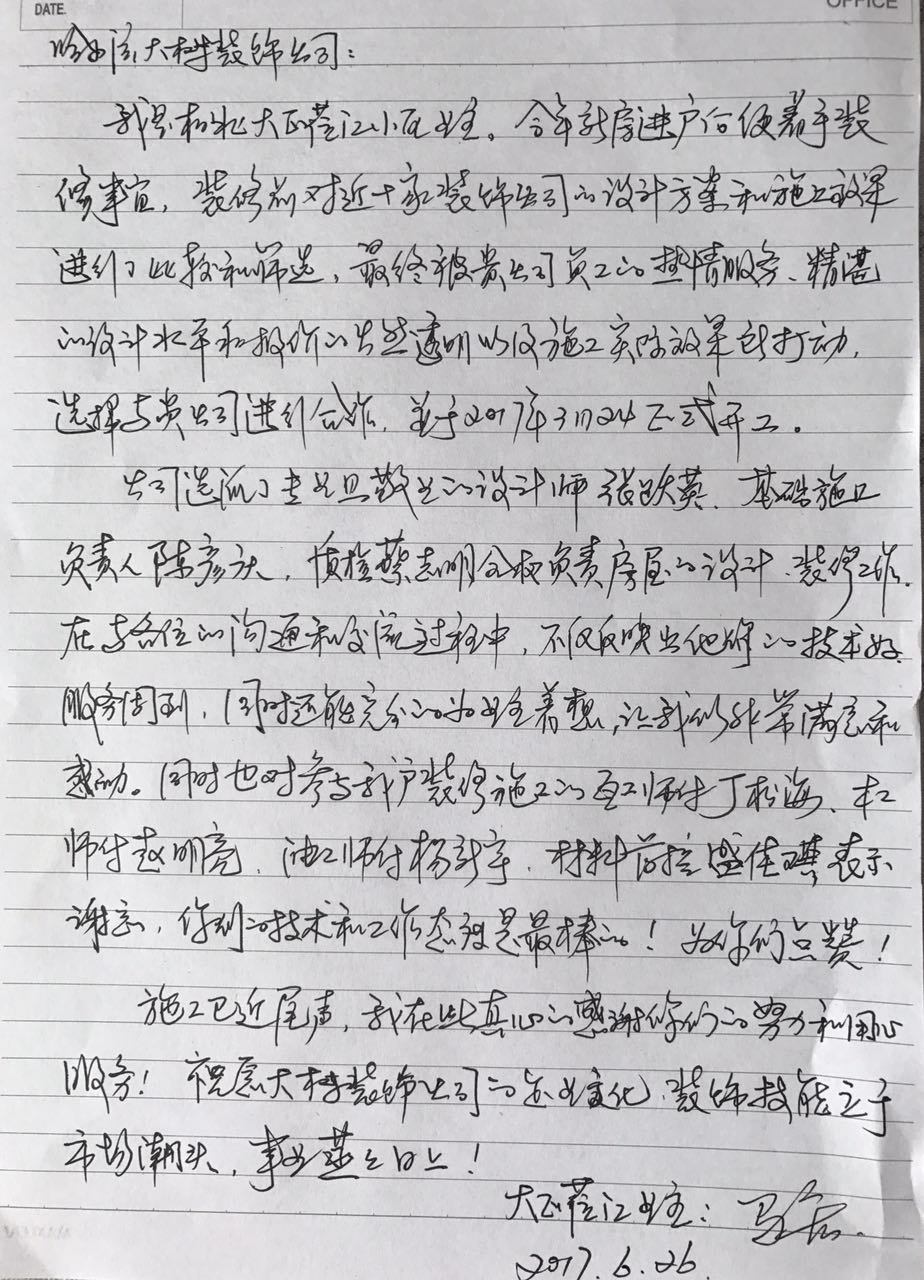 DATE.
OFFICE
哈尔滨大树装饰公司：
我是松北大正莅江小区业主。今年新房进户后便着手装
修事宜，装修前对近十家装饰公司的设计方案和施工效果
进行了比较和筛选，最终被贵公司员工的热情服务、精湛
的设计水平和报价的公然透明以及施工实际效果所打动，
选择与贵公司进行合作，并于2017年3月24正式开工。
公司选派了专业且敬业的设计师张跃英、基础施工
负责人陈彦庆，质检蔡志明全权负责房屋的设计、装修工作。
在与各位的沟通和交流过程中，不仅反映出他们的技术好、
服务周到，同时还能完全的为业主着想，让我们非常满意和
感动。同时也对参与我户装修施工的瓦工师付丁松海、木工
师付赵明亮、油工师付杨新宇、材料前控盛佳琪表示
谢意，你们的技术和工作态度是最棒的！为你们点赞！
施工已近尾声，我在此真心的感谢你们的努力和用心
服务！祝愿大树装饰公司的企业文化、装饰技能立于
市场潮头，事业蒸蒸日上！
大正莅江业主：
2017.6.26